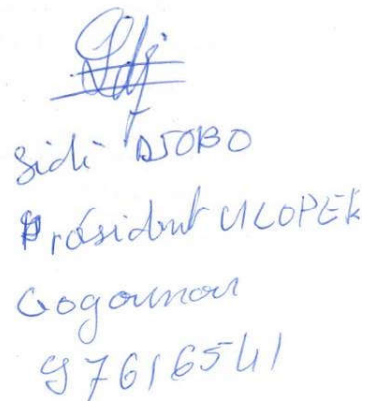 Sidi DJOBO
Président UCOPER
Gogounou
97616541